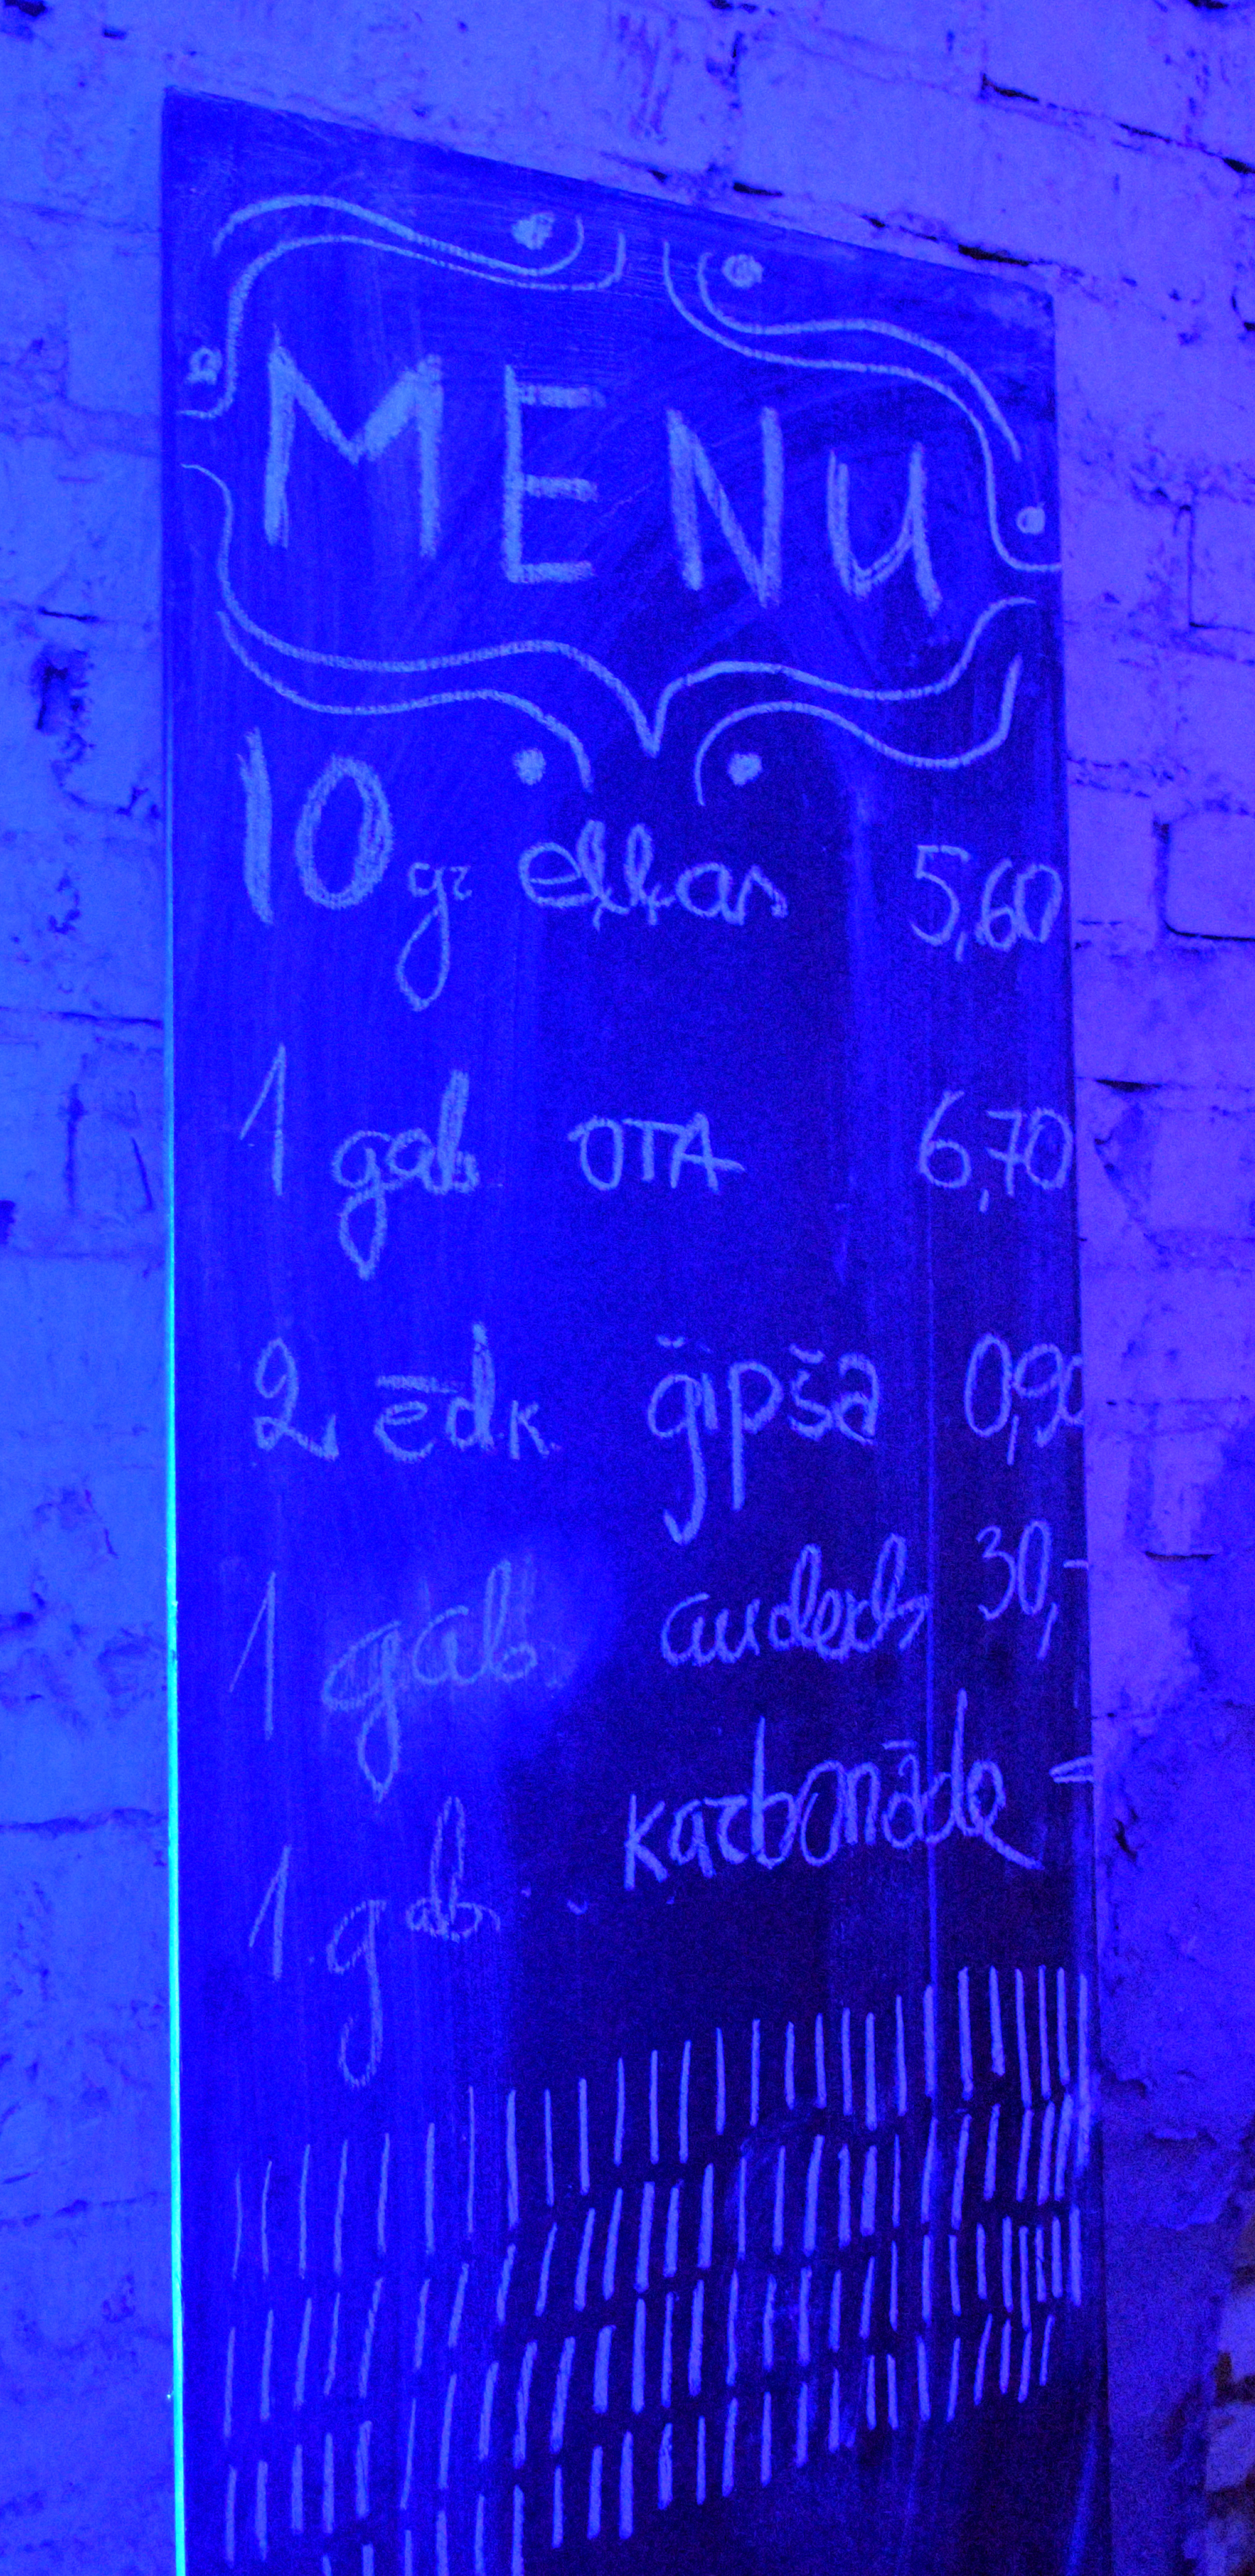 MENU
10 gr eļļas 5,60
1 gab OTA 6,70
2 ēdk ģipša 0,90
1 gab audekls 30,-
1 gab karbonāde -